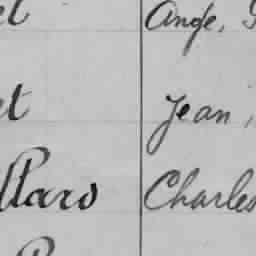 et Ange,
et Jean,
llard Charles